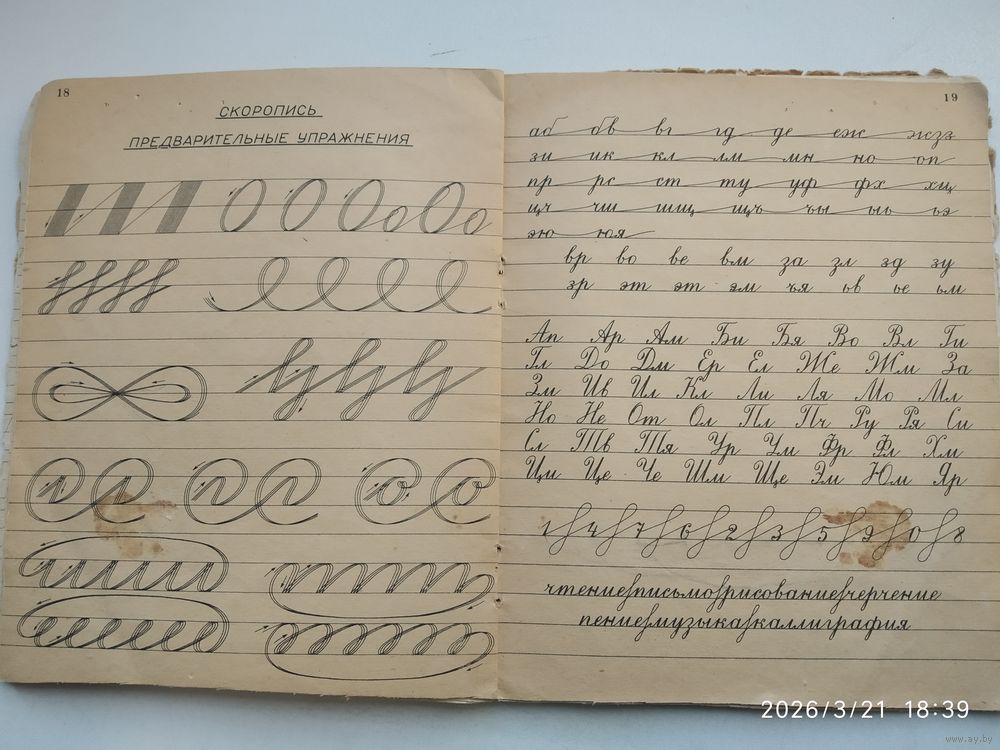 18
СКОРОПИСЬ
ПРЕДВАРИТЕЛЬНЫЕ УПРАЖНЕНИЯ
19
аб бв вг гд де еж жзз
зи ик кл лм мн но оп
пр рс ст ту уф фх хц
цч чш шщ щъ ъы ыь ьэ
эю юя
вр во ве вм за зл зд зу
зр эт эт эм ъя ьв ье ьм
Ап Ар Ам Би Бя Во Вл Ги
Гл До Дм Ер Ел Же Жм За
Зм Ив Ил Кл Ли Ля Мо Мл
Но Не От Ол Пл Пч Ру Ря Си
Сл Тв Тя Ур Ум Фр Фл Хм
Ци Це Че Шм Ще Эм Юм Яр
1 4 7 6 2 3 5 9 0 8
чтение письмо рисование черчение
пение музыка каллиграфия
2026/3/21 18:39
www.ay.by